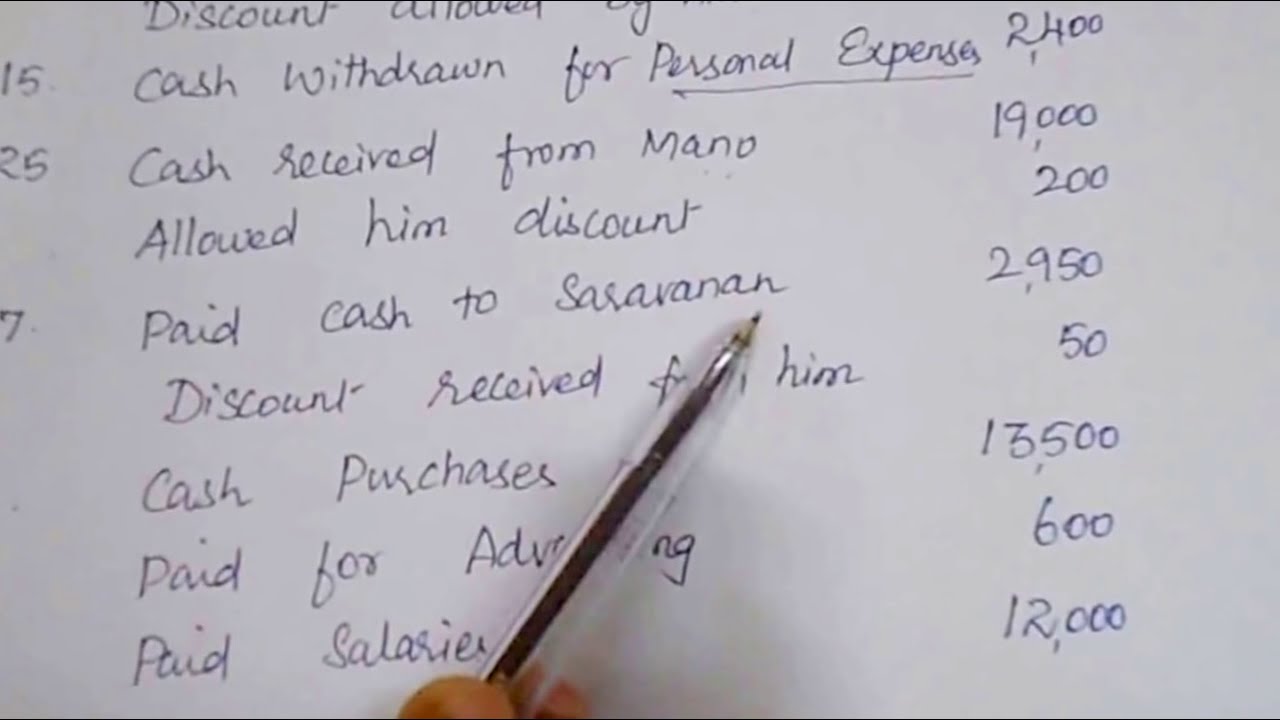 Discount allowed by
15. Cash Withdrawn for Personal Expenses 2,400
25 Cash received from Mano 19,000
Allowed him discount 200
7. Paid cash to Saravanan 2,950
Discount received him 50
Cash Purchases 13,500
Paid for 600
Paid Salaries 12,000